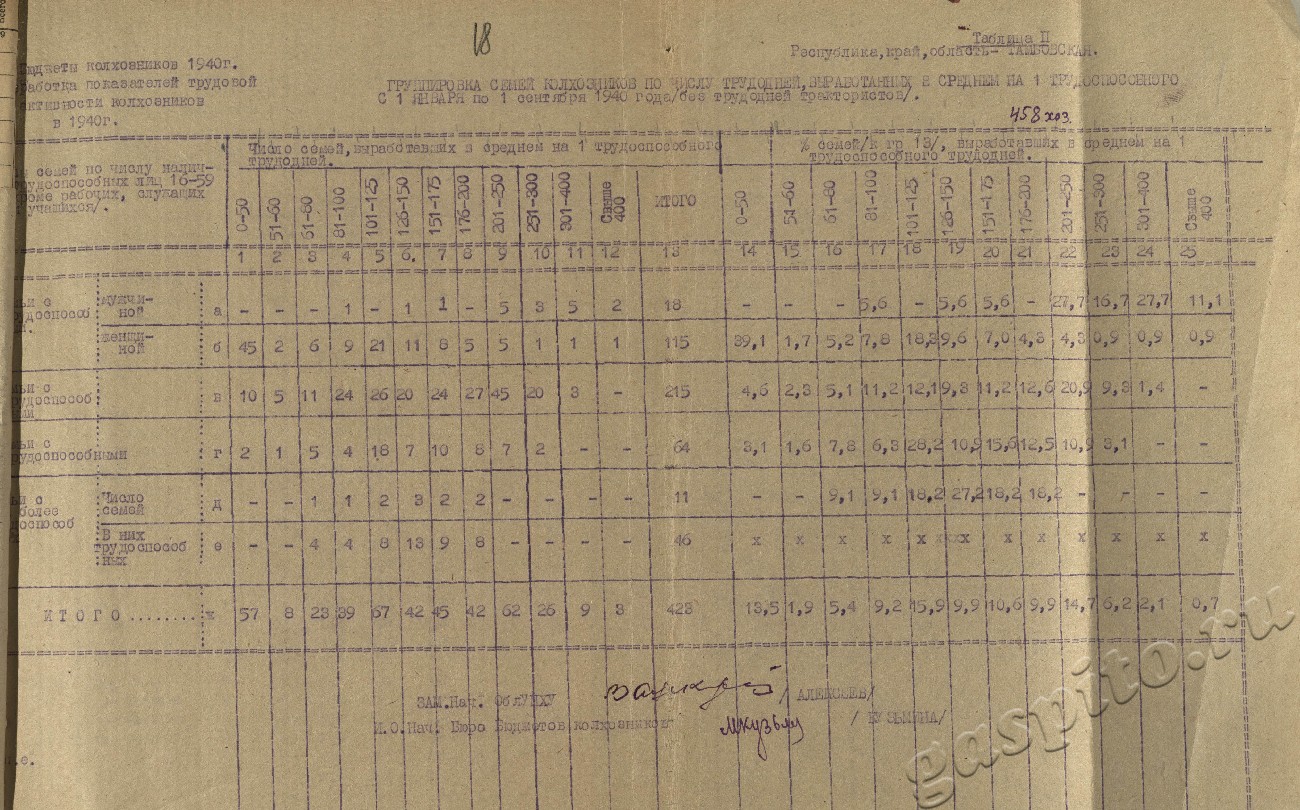 18
Таблица II
Республика, край, область- ТАМБОВСКАЯ.
юджеты колхозников 1940г.
работка показателей трудовой
активности колхозников
в 1940г.
ГРУППИРОВКА СЕМЕЙ КОЛХОЗНИКОВ ПО ЧИСЛУ ТРУДОДНЕЙ, ВЫРАБОТАННЫХ В СРЕДНЕМ НА 1 ТРУДОСПОСОБНОГО
С 1 ЯНВАРЯ по 1 сентября 1940 года/без трудодней трактористов/.
458 хоз.
семей по числу налич-
трудоспособных лиц 16-59
роме рабочих, служащих
учащихся/.
Число семей, выработавших в среднем на 1 трудоспособного
трудодней.
% семей/к гр 13/, выработавших в среднем на 1
трудоспособного трудодней.
0-50 51-60 61-80 81-100 101-125 126-150 151-175 176-200 201-250 251-300 301-400 Свыше 400 ИТОГО 0-50 51-60 61-80 81-100 101-125 126-150 151-175 176-200 201-250 251-300 301-400 Свыше 400
1 2 3 4 5 6. 7 8 9 10 11 12 13 14 15 16 17 18 19 20 21 22 23 24 25
ьи с трудоспособ мужчи-ной а - - - 1 - 1 1 - 5 3 5 2 18 - - - 5,6 - 5,6 5,6 - 27,7 16,7 27,7 11,1
женщи-ной б 45 2 6 9 21 11 8 5 5 1 1 1 115 39,1 1,7 5,2 7,8 18,3 9,6 7,0 4,3 4,3 0,9 0,9 0,9
ьи с трудоспособ ыми в 10 5 11 24 26 20 24 27 45 20 3 - 215 4,6 2,3 5,1 11,2 12,1 9,3 11,2 12,6 20,9 9,3 1,4 -
ьи с трудоспособными г 2 1 5 4 18 7 10 8 7 2 - - 64 3,1 1,6 7,8 6,3 28,2 10,9 15,6 12,5 10,9 3,1 - -
ьи с более доспособ Число семей д - - 1 1 2 3 2 2 - - - - 11 - - 9,1 9,1 18,2 27,2 18,2 18,2 - - - -
В них трудоспособ ных е - - 4 4 8 13 9 8 - - - - 46 х х х х х хххх х х х х х х
ИТОГО........ ж 57 8 23 39 67 42 45 42 62 26 9 3 423 13,5 1,9 5,4 9,2 15,9 9,9 10,6 9,9 14,7 6,2 2,1 0,7
ЗАМ.Нач. ОблУНХУ / АЛЕКСЕЕВ/
И.О.Нач. Бюро Бюджетов колхозников МКузьму / КУЗЬМИНА/
.е.
gaspito.ru